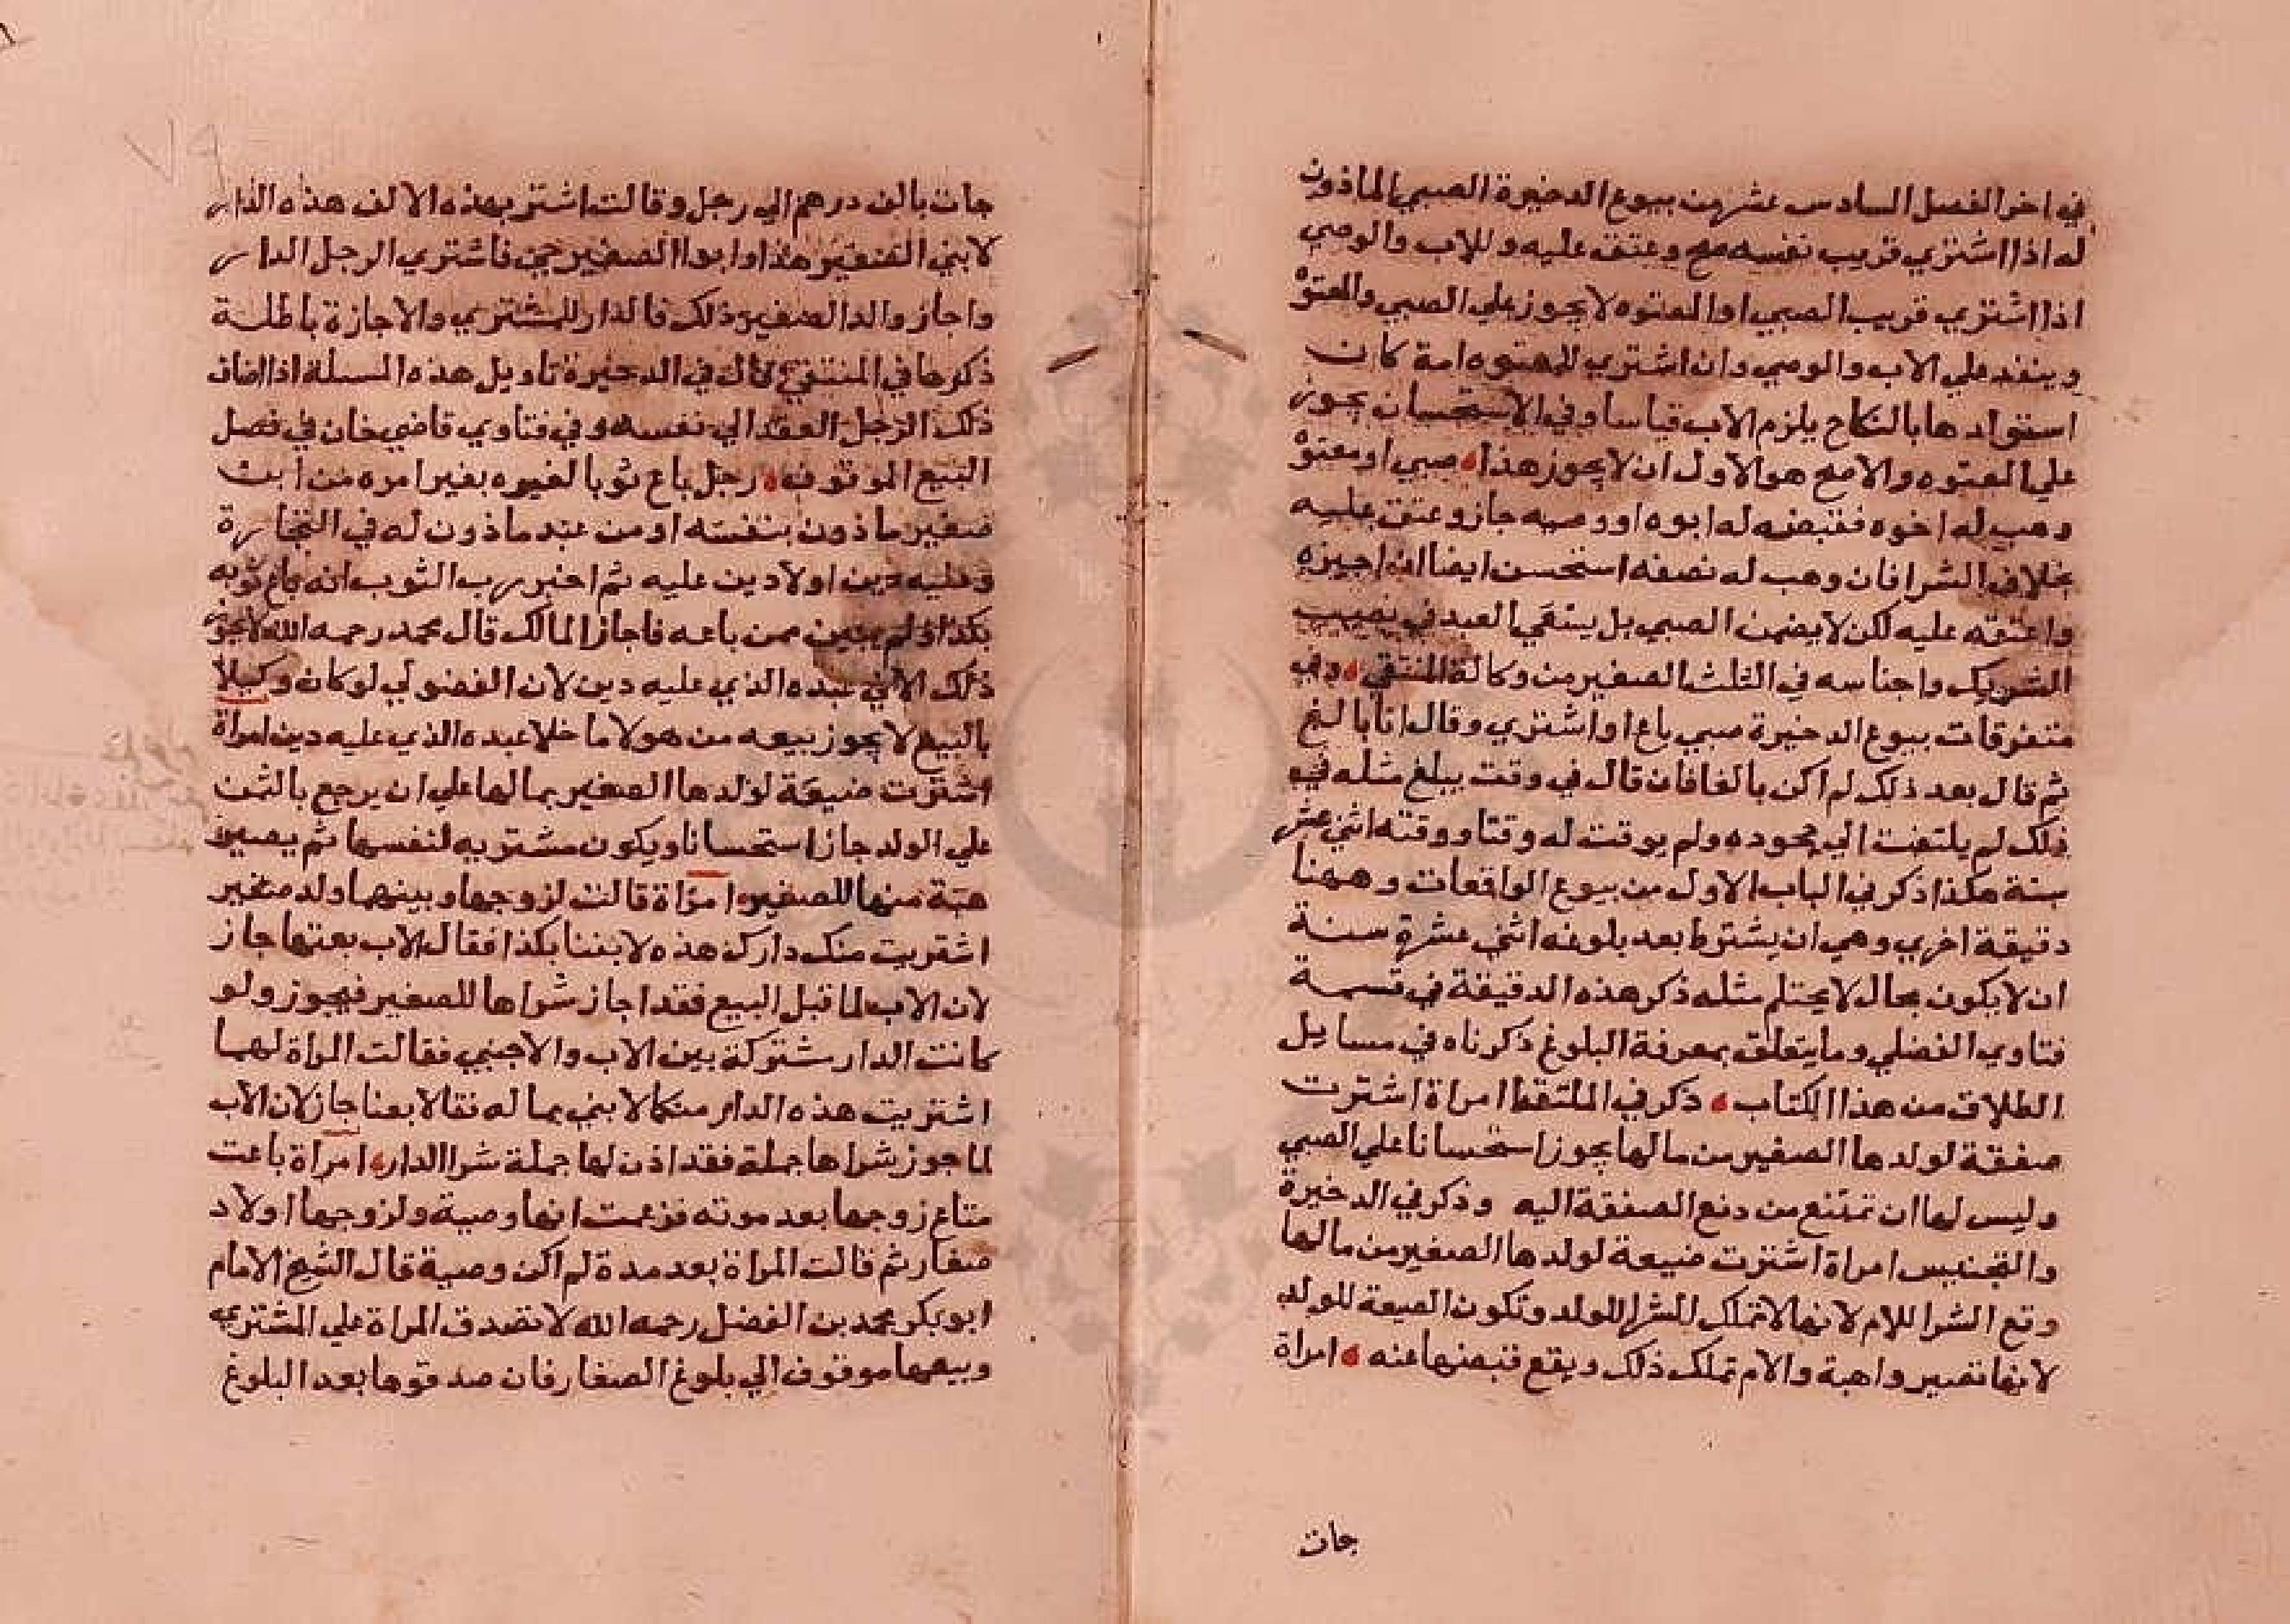 في اخر الفصل السادس عشر من بيوع الدخيرة الصبي الماذون
له اذا اشتري قريب نفسه صح وعتق عليه وللاب والوصي
اذا اشتري قريب الصبي او المعتوه لا يجوز علي الصبي والمعتوه
وينفد علي الاب والوصي وان اشتري للمعتوه امة كان
استولدها بالنكاح يلزم الاب قياسا وفي الاستحسان يجوز
علي المعتوه والاصح هو الاول ان لا يجوز هذا صبي او معتوه
وهب له اخوه فقبضه له ابوه او وصيه جاز وعتق عليه
بخلاف الشرا فان وهب له نصفه استحسن ايضا ان اجيزه
واعتقه عليه لكن لا يضمن الصبي بل يسعي العبد في نصيب
الشريك واجناسه في الثلث الصغير من وكالة المنتقي وفي
متفرقات بيوع الدخيرة صبي باع او اشتري وقال انا بالغ
ثم قال بعد ذلك لم اكن بالغا فان قال في وقت يبلغ مثله في
ذلك لم يلتفت الي جحوده ولم يوقت له وقتا ووقته اثني عشر
سنة هكذا ذكر في الباب الاول من بيوع الواقعات وههنا
دقيقة اخري وهي ان يشترط بعد بلوغه اثني عشرة سنة
ان لا يكون بحال لا يحتلم مثله ذكر هذه الدقيقة في قسمة
فتاوي الفضلي وما يتعلق بمعرفة البلوغ ذكرناه في مسايل
الطلاق من هذا الكتاب ذكر في الملتقط امراة اشترت
صفقة لولدها الصغير من مالها يجوز استحسانا علي الصبي
وليس لها ان تمتنع من دفع الصفقة اليه وذكر في الدخيرة
والتجنيس امراة اشترت ضيعة لولدها الصغير من مالها
وقع الشرا للام لانها لا تملك الشرا للولد وتكون الضيعة للولد
لانها تصير واهبة والام تملك ذلك ويقع قبضها عنه امراة
جات
جات بالف درهم الي رجل وقالت اشتر بهذه الالف هذه الدار
لابني الصغير هذا وابوا الصغير حي فاشتري الرجل الدار
واجاز والد الصغير ذلك فالدار للمشتري والاجازة باطلة
ذكرها في المنتقي قال في الدخيرة تاويل هذه المسلة اذا اضاف
ذلك الرجل العقد الي نفسه وفي فتاوي قاضي خان في فصل
البيع الموقوف رجل باع ثوبا لغيره بغير امره من ابن
صغير ماذون بنفسه او من عبد ماذون له في التجارة
وعليه دين او لا دين عليه ثم اخبر رب الثوب انه باع ثوبه
بكذا ولم يبين ممن باعه فاجاز المالك قال محمد رحمه الله لا يجوز
ذلك الا في عبده الذي عليه دين لان الفضولي لو كان وكيلا
بالبيع لا يجوز بيعه من هولا ما خلا عبده الذي عليه دين امراة
اشترت ضيعة لولدها الصغير بمالها علي ان يرجع بالثمن
علي الولد جاز استحسانا ويكون مشتريه لنفسها ثم يصير
هبة منها للصغير امراة قالت لزوجها وبينهما ولد صغير
اشتريت منك دارك هذه لابننا بكذا فقال الاب بعتها جاز
لان الاب لما قبل البيع فقد اجاز شراها للصغير فيجوز ولو
كانت الدار مشتركة بين الاب والاجنبي فقالت المراة لهما
اشتريت هذه الدار منكما لابني بماله فقالا بعنا جاز لان الاب
لما جوز شراها جملة فقد اذن لها جملة شرا الدار امراة باعت
متاع زوجها بعد موته فزعمت انها وصية ولزوجها اولاد
صغار ثم قالت المراة بعد مدة لم اكن وصية قال الشيخ الامام
ابو بكر محمد بن الفضل رحمه الله لا تصدق المراة علي المشتري
وبيعها موقوف الي بلوغ الصغار فان صدقوها بعد البلوغ